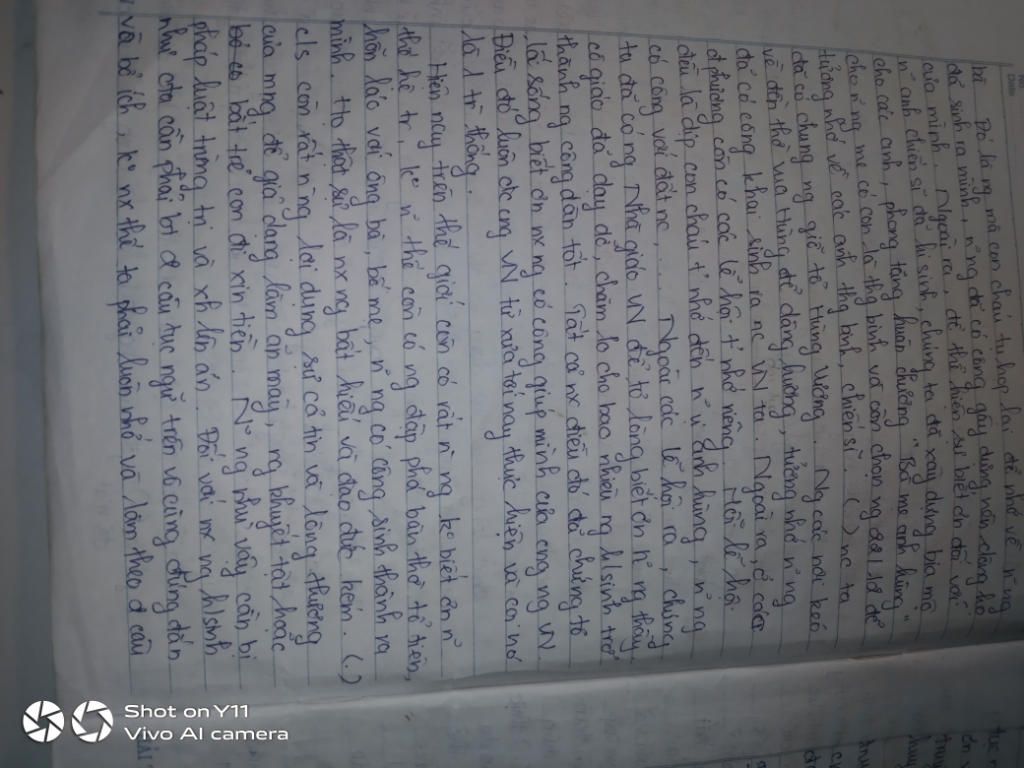 bề. Đó là ng mà con cháu tụ họp lại để nhớ về n̄ ng
đã sinh ra mình, n̄ ng đã có công gây dựng nên dòng họ
của mình. Ngoài ra, để thể hiện sự biết ơn đối với
n̄ anh chiến sĩ đã hi sinh, chúng ta đã xây dựng bia mộ
cho các anh, phong tặng huân chương "Bà mẹ anh hùng"
cho n̄ ng mẹ có con là thg binh và còn chọn ng để
tưởng nhớ về các anh thg binh, chiến sĩ. (.) nc ta
đã có chung ng giỗ tổ Hùng Vương. Ng các nơi kéo
về đền thờ vua Hùng để dâng hương, tưởng nhớ n̄ ng
đã có công khai sinh ra nc VN ta. Ngoài ra, ở các
địa phương còn có các lễ hội t² nhớ riêng. Mỗi lễ hội
đều là dịp con cháu t² nhớ đến n̄ vị anh hùng, n̄ ng
có công với đất nc, ... Ngoài các lễ hội ra, chúng
ta đã có ng Nhà giáo VN để tỏ lòng biết ơn n̄ ng thầy
cô giáo đã dạy dỗ, chăm lo cho bao nhiêu ng h/sinh trở
thành ng công dân tốt. Tất cả nx điều đó đã chứng tỏ
lối sống biết ơn nx ng có công giúp mình của cng ng VN
Điều đó luôn đc cng VN từ xưa tới nay thực hiện và coi nó
là 1 tr thống.
Hiện nay trên thế giới còn có rất n̄ ng ko biết ơn n̄
thế hệ tr, k° n̄ thế còn có ng đập phá bàn thờ tổ tiên,
hỗn láo với ông bà, bố mẹ, n̄ ng có công sinh thành ng
mình. Họ thật sự là nx ng bất hiếu và đạo đức kém. (.)
c/s còn rất n̄ ng lợi dụng sự cả tin và lòng thương
của mng để giả dạng làm ăn mày, ng khuyết tật hoặc
bắt trẻ con đi xin tiền. N̄ ng như vậy cần bị
pháp luật trừng trị và xh lên án. Đối với nx ng h/sinh
như cta cần phải bt đ câu tục ngữ trên vô cùng đúng đắn
và bổ ích, k° nx thế ta phải luôn nhớ và làm theo đ câu